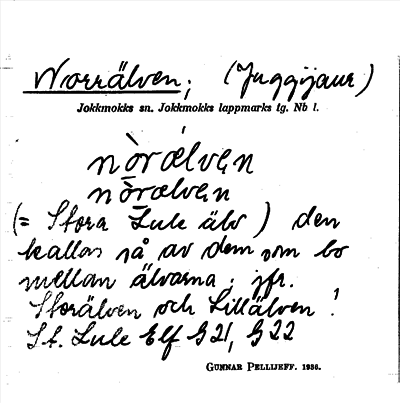 Norrälven; (Juggijaur)
Jokkmokks sn. Jokkmokks lappmarks tg. Nb l.
nòrælvęn
nòrælvęn
(= Stora Lule älv) den
kallas så av dem som bo
mellan älvarna; jfr.
Storälven och Lillälven!
St. Lule Elf G21, G22
GUNNAR PELLIJEFF. 1936.